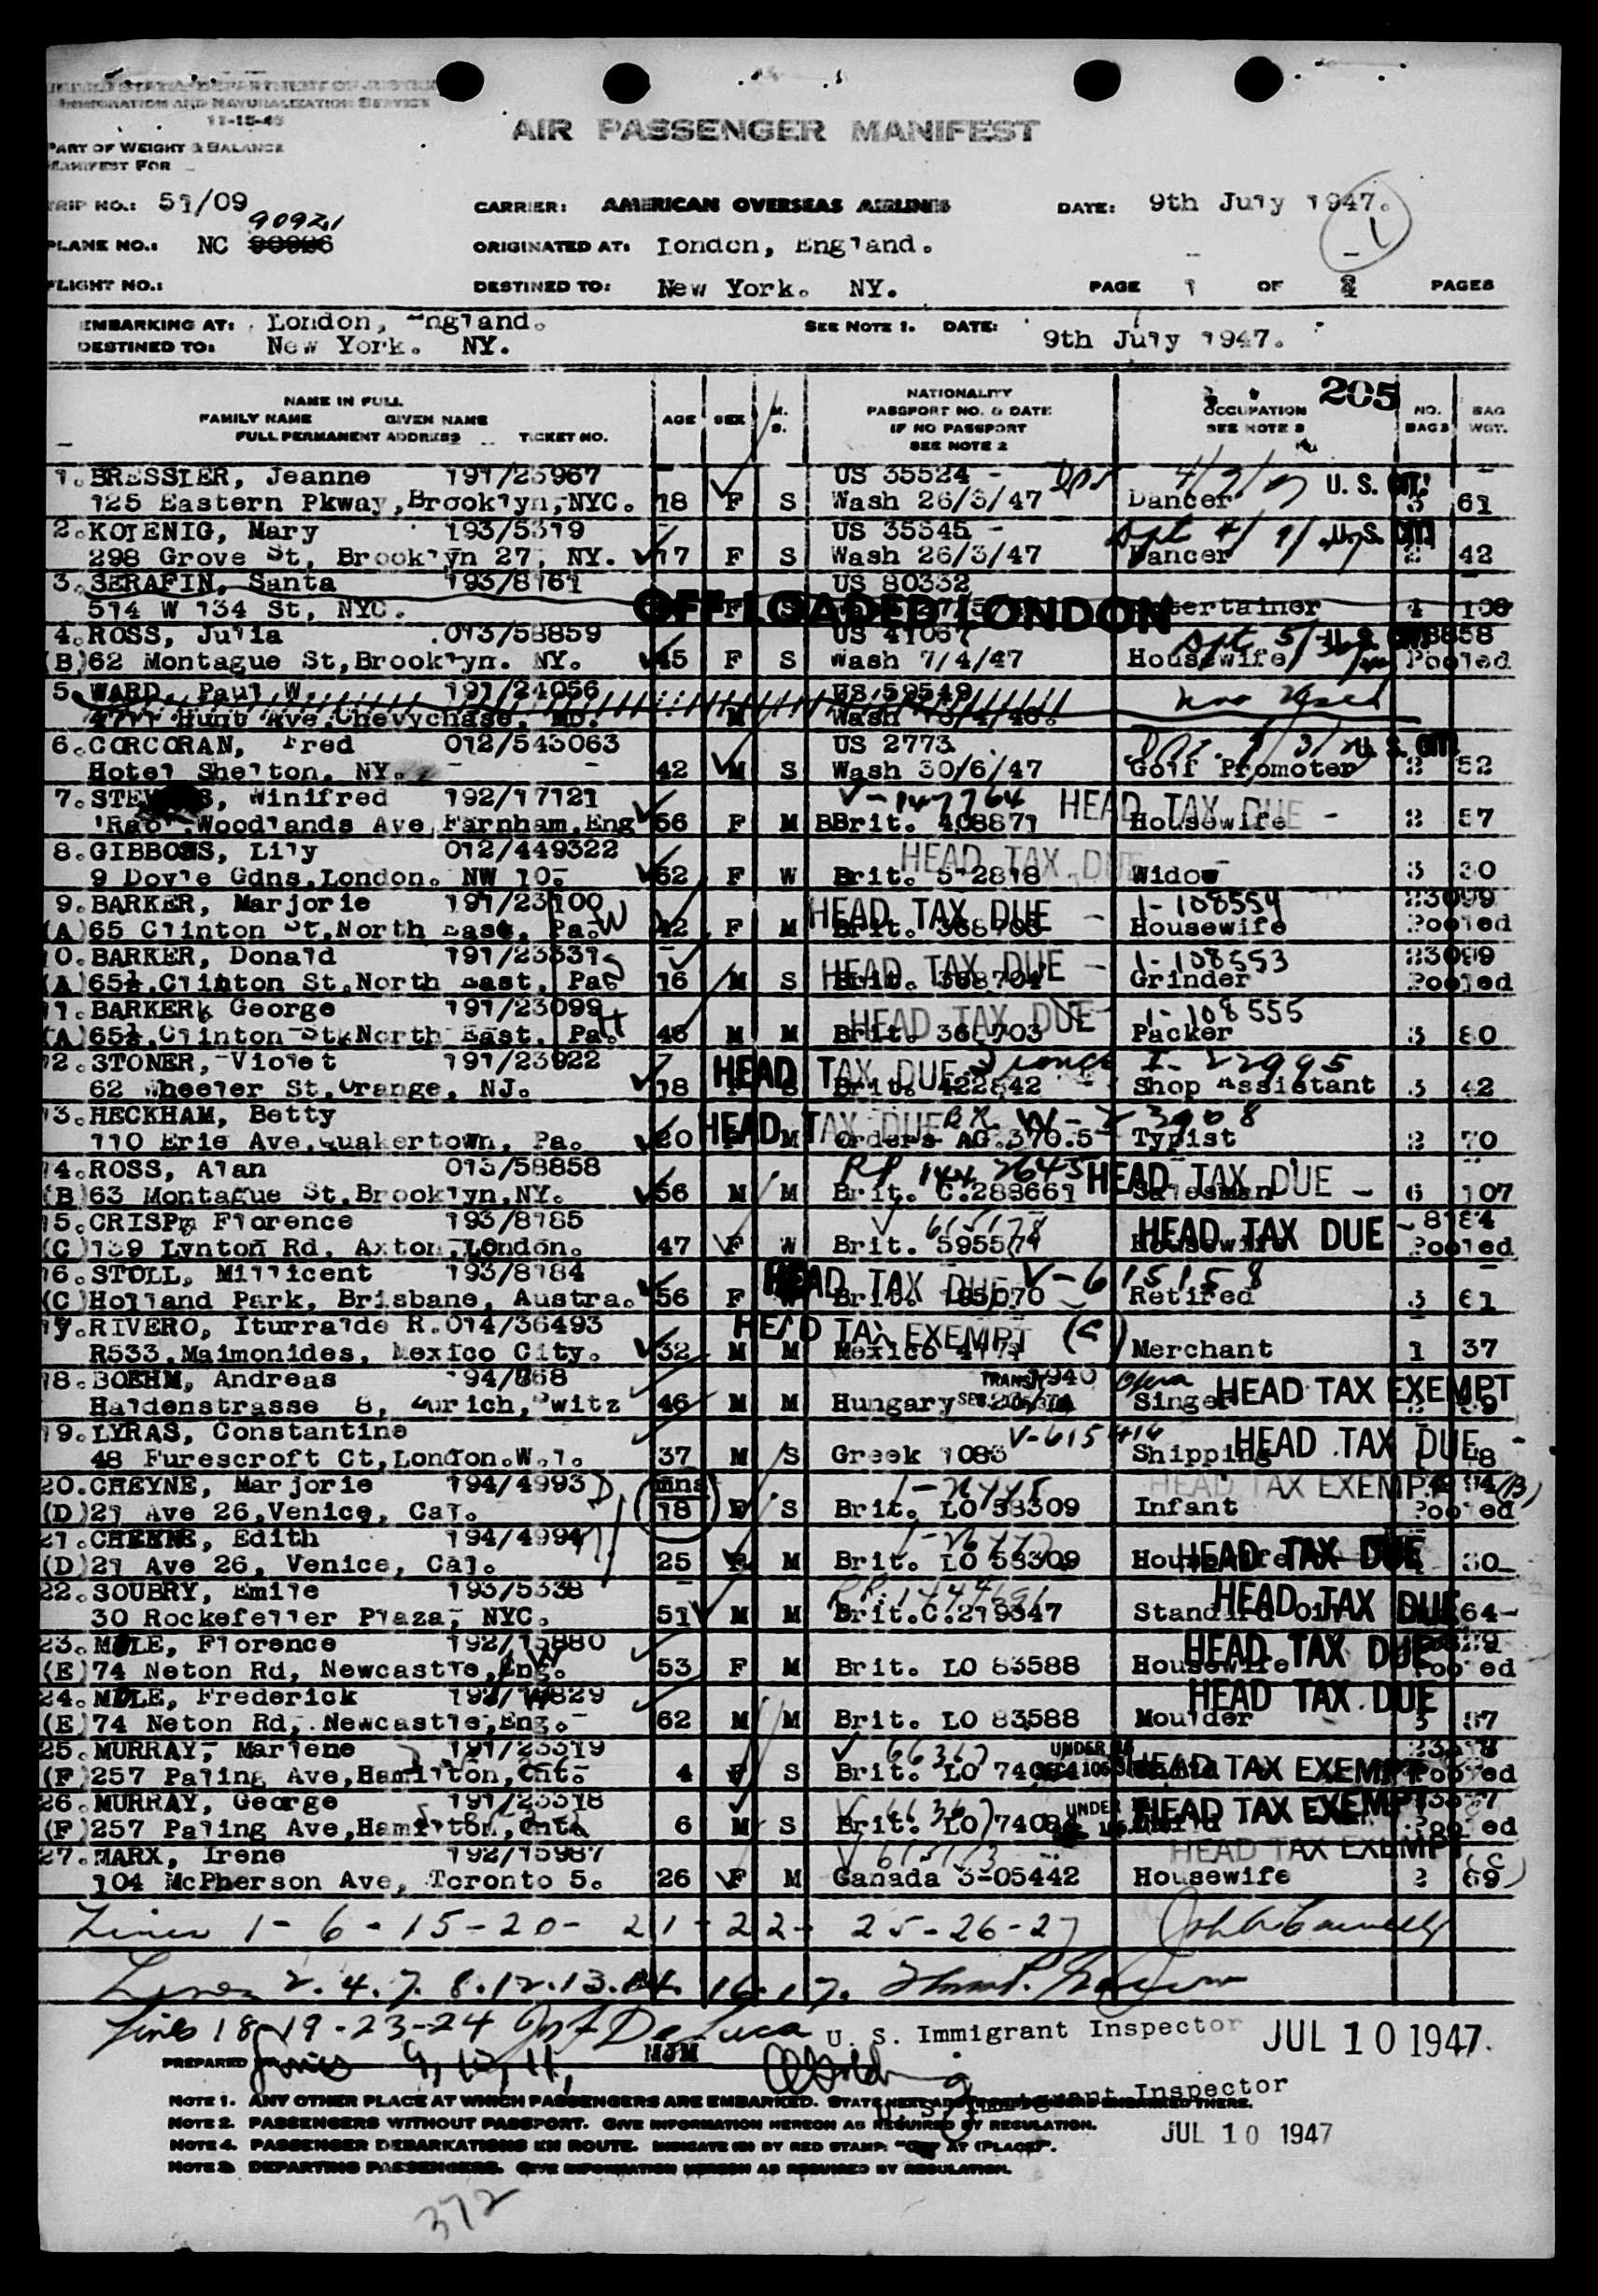 UNITED STATES DEPARTMENT OF JUSTICE
IMMIGRATION AND NATURALIZATION SERVICE
11-15-45
AIR PASSENGER MANIFEST
PART OF WEIGHT & BALANCE
MANIFEST FOR
TRIP NO.: 51/09 CARRIER: AMERICAN OVERSEAS AIRLINES DATE: 9th July 1947.
90921 1
PLANE NO.: NC ORIGINATED AT: London, England.
FLIGHT NO.: DESTINED TO: New York. NY. PAGE 1 OF 2 PAGES
EMBARKING AT: London, England. SEE NOTE 1. DATE: 9th July 1947.
DESTINED TO: New York. NY.
205
NAME IN FULL
FAMILY NAME GIVEN NAME
FULL PERMANENT ADDRESS TICKET NO.
AGE SEX M. S.
NATIONALITY
PASSPORT NO. & DATE
IF NO PASSPORT
SEE NOTE 2
OCCUPATION
SEE NOTE 3
NO. BAGS BAG WGT.
1. BRESSLER, Jeanne 191/23967 US 35524 - U. S. CIT.
125 Eastern Pkway, Brooklyn, NYC. 18 F S Wash 26/3/47 Dancer 3 61
2. KOLENIG, Mary 193/5319 US 35545 - U. S. CIT.
298 Grove St, Brooklyn 27, NY. 17 F S Wash 26/3/47 Dancer 2 42
3. SERAFIN, Santa 193/8161 US 80332
514 W 134 St, NYC. OFF LOADED LONDON Entertainer 4 108
4. ROSS, Julia 013/58859 US 41067 58858
(B) 62 Montague St, Brooklyn. NY. 45 F S Wash 7/4/47 Housewife Pooled
5. WARD, Paul W. 191/24056 US 59549
Hunt Ave, Chevychase, MD. M Wash
6. CORCORAN, Fred 012/543063 US 2773 U. S. CIT.
Hotel Shelton, NY. 42 M S Wash 30/6/47 Golf Promoter 2 52
7. Winifred 192/17121 V-147764 HEAD TAX DUE -
Woodlands Ave, Farnham, Eng 56 F M BBrit. 408871 Housewife 2 57
8. GIBBONS, Lily 012/449322 HEAD TAX DUE
9 Doyle Gdns, London. NW 10. 62 F W Brit. 5-2818 Widow 3 30
9. BARKER, Marjorie 191/23100 W HEAD TAX DUE - 1-108554 23099
(A) 65 Clinton St, North East, Pa. 42 F M Brit. 368705 Housewife Pooled
10. BARKER, Donald 191/23331 S HEAD TAX DUE - 1-108553 23099
(A) 65½, Clinton St, North East, Pa. 16 M S Brit. 368704 Grinder Pooled
11. BARKER, George 191/23099 H HEAD TAX DUE 1-108555
(A) 65½, Clinton St, North East, Pa. 46 M M Brit. 368703 Packer 3 80
12. STONER, Violet 191/23922 HEAD TAX DUE I-22995
62 Wheeler St, Orange, NJ. 18 F S Brit. 422842 Shop Assistant 3 42
13. HECKHAM, Betty HEAD TAX DUE
110 Erie Ave, Quakertown, Pa. 20 F M Orders AG.370.5 Typist 2 70
14. ROSS, Alan 013/58858 RP HEAD TAX DUE -
(B) 63 Montague St, Brooklyn, NY. 56 M M Brit. C.288661 Salesman 6 107
15. CRISP, Florence 193/8185 V 615178 HEAD TAX DUE 8184
(C) 139 Lynton Rd, Axton, London. 47 F W Brit. Housewife Pooled
16. STOLL, Millicent 193/8184 HEAD TAX DUE V-615158
(C) Holland Park, Brisbane, Austra. 56 F W Brit. Retired 3 61
17. RIVERO, Iturralde R. 014/36493 HEAD TAX EXEMPT (C)
R533, Maimonides, Mexico City. 32 M M Mexico Merchant 1 37
18. BOEHM, Andreas TRANSIT Opera HEAD TAX EXEMPT
Haldenstrasse 8, Zurich, Switz 46 M M Hungary Singer
19. LYRAS, Constantine V-615416 HEAD TAX DUE -
48 Furescroft Ct, London. W.1. 37 M S Greek 1083 Shipping
20. CHEYNE, Marjorie 194/4993 D mns HEAD TAX EXEMPT (B)
(D) 21 Ave 26, Venice, Cal. 18 F S Brit. LO 58309 Infant Pooled
21. CHEYNE, Edith 194/4994 HEAD TAX DUE
(D) 21 Ave 26, Venice, Cal. 25 F M Brit. LO 58309 Housewife 30
22. SOUBRY, Emile 193/5338 HEAD TAX DUE
30 Rockefeller Plaza, NYC. 51 M M Brit.C.219347 Standard Oil 64
23. MOLE, Florence 192/15880 HEAD TAX DUE
(E) 74 Neton Rd, Newcastle, Eng. 53 F M Brit. LO 83588 Housewife Pooled
24. MOLE, Frederick HEAD TAX DUE
(E) 74 Neton Rd, Newcastle, Eng. 62 M M Brit. LO 83588 Moulder 3 57
25. MURRAY, Marlene 191/23319 V 66367 UNDER 16 HEAD TAX EXEMPT
(F) 257 Paling Ave, Hamilton, Ont. 4 F S Brit. LO Pooled
26. MURRAY, George 191/23318 UNDER HEAD TAX EXEMPT
(F) 257 Paling Ave, Hamilton, Ont. 6 M S Brit. LO Pooled
27. MARX, Irene 192/15987 HEAD TAX EXEMPT (C)
104 McPherson Ave, Toronto 5. 26 F M Canada 3-05442 Housewife 2 69
Lines 1 - 6 - 15 - 20 - 21 - 22 - 25 - 26 - 27
Lines 2. 4. 7. 8. 12. 13. 14. 16. 17.
Lines 18-19-23-24 Jos. F. DeLuca U. S. Immigrant Inspector JUL 10 1947.
PREPARED BY MJM
Lines 9, 10, 11,
U. S. Immigrant Inspector
NOTE 1. ANY OTHER PLACE AT WHICH PASSENGERS ARE EMBARKED.
NOTE 2. PASSENGERS WITHOUT PASSPORT. GIVE INFORMATION HEREON AS REQUIRED BY REGULATION.
JUL 10 1947
NOTE 4. PASSENGER DEBARKATIONS EN ROUTE. INDICATE IN BY RED STAMP: "OFF AT (PLACE)".
NOTE 3. DEPARTING PASSENGERS. GIVE INFORMATION HEREON AS REQUIRED BY REGULATION.
372